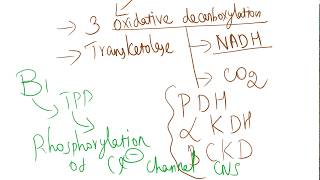 → 3 Oxidative decarboxylation
→ Transketolase → NADH
→ CO2
B1
TPP
PDH
α KDH
BCKD
Phosphorylation
of Cl⊖ channel CNS